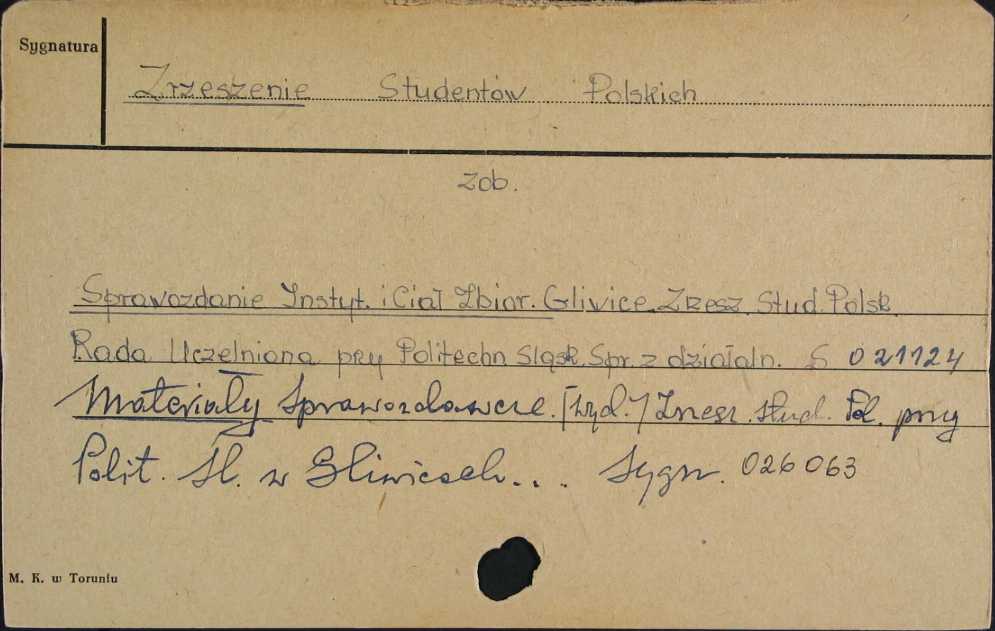 Sygnatura
Zrzeszenie Studentów Polskich
zob.
Sprawozdanie Instyt. i Ciał Zbior. Gliwice. Zrzesz. Stud. Polsk.
Rada Uczelniana przy Politechn. Śląsk. Spr. z działaln. S 021124
Materiały Sprawozdawcze. [Wyd.] Zrzesz. Stud. Pol. przy
Polit. Śl. w Gliwicach... Sygn. 026063
M. K. w Toruniu